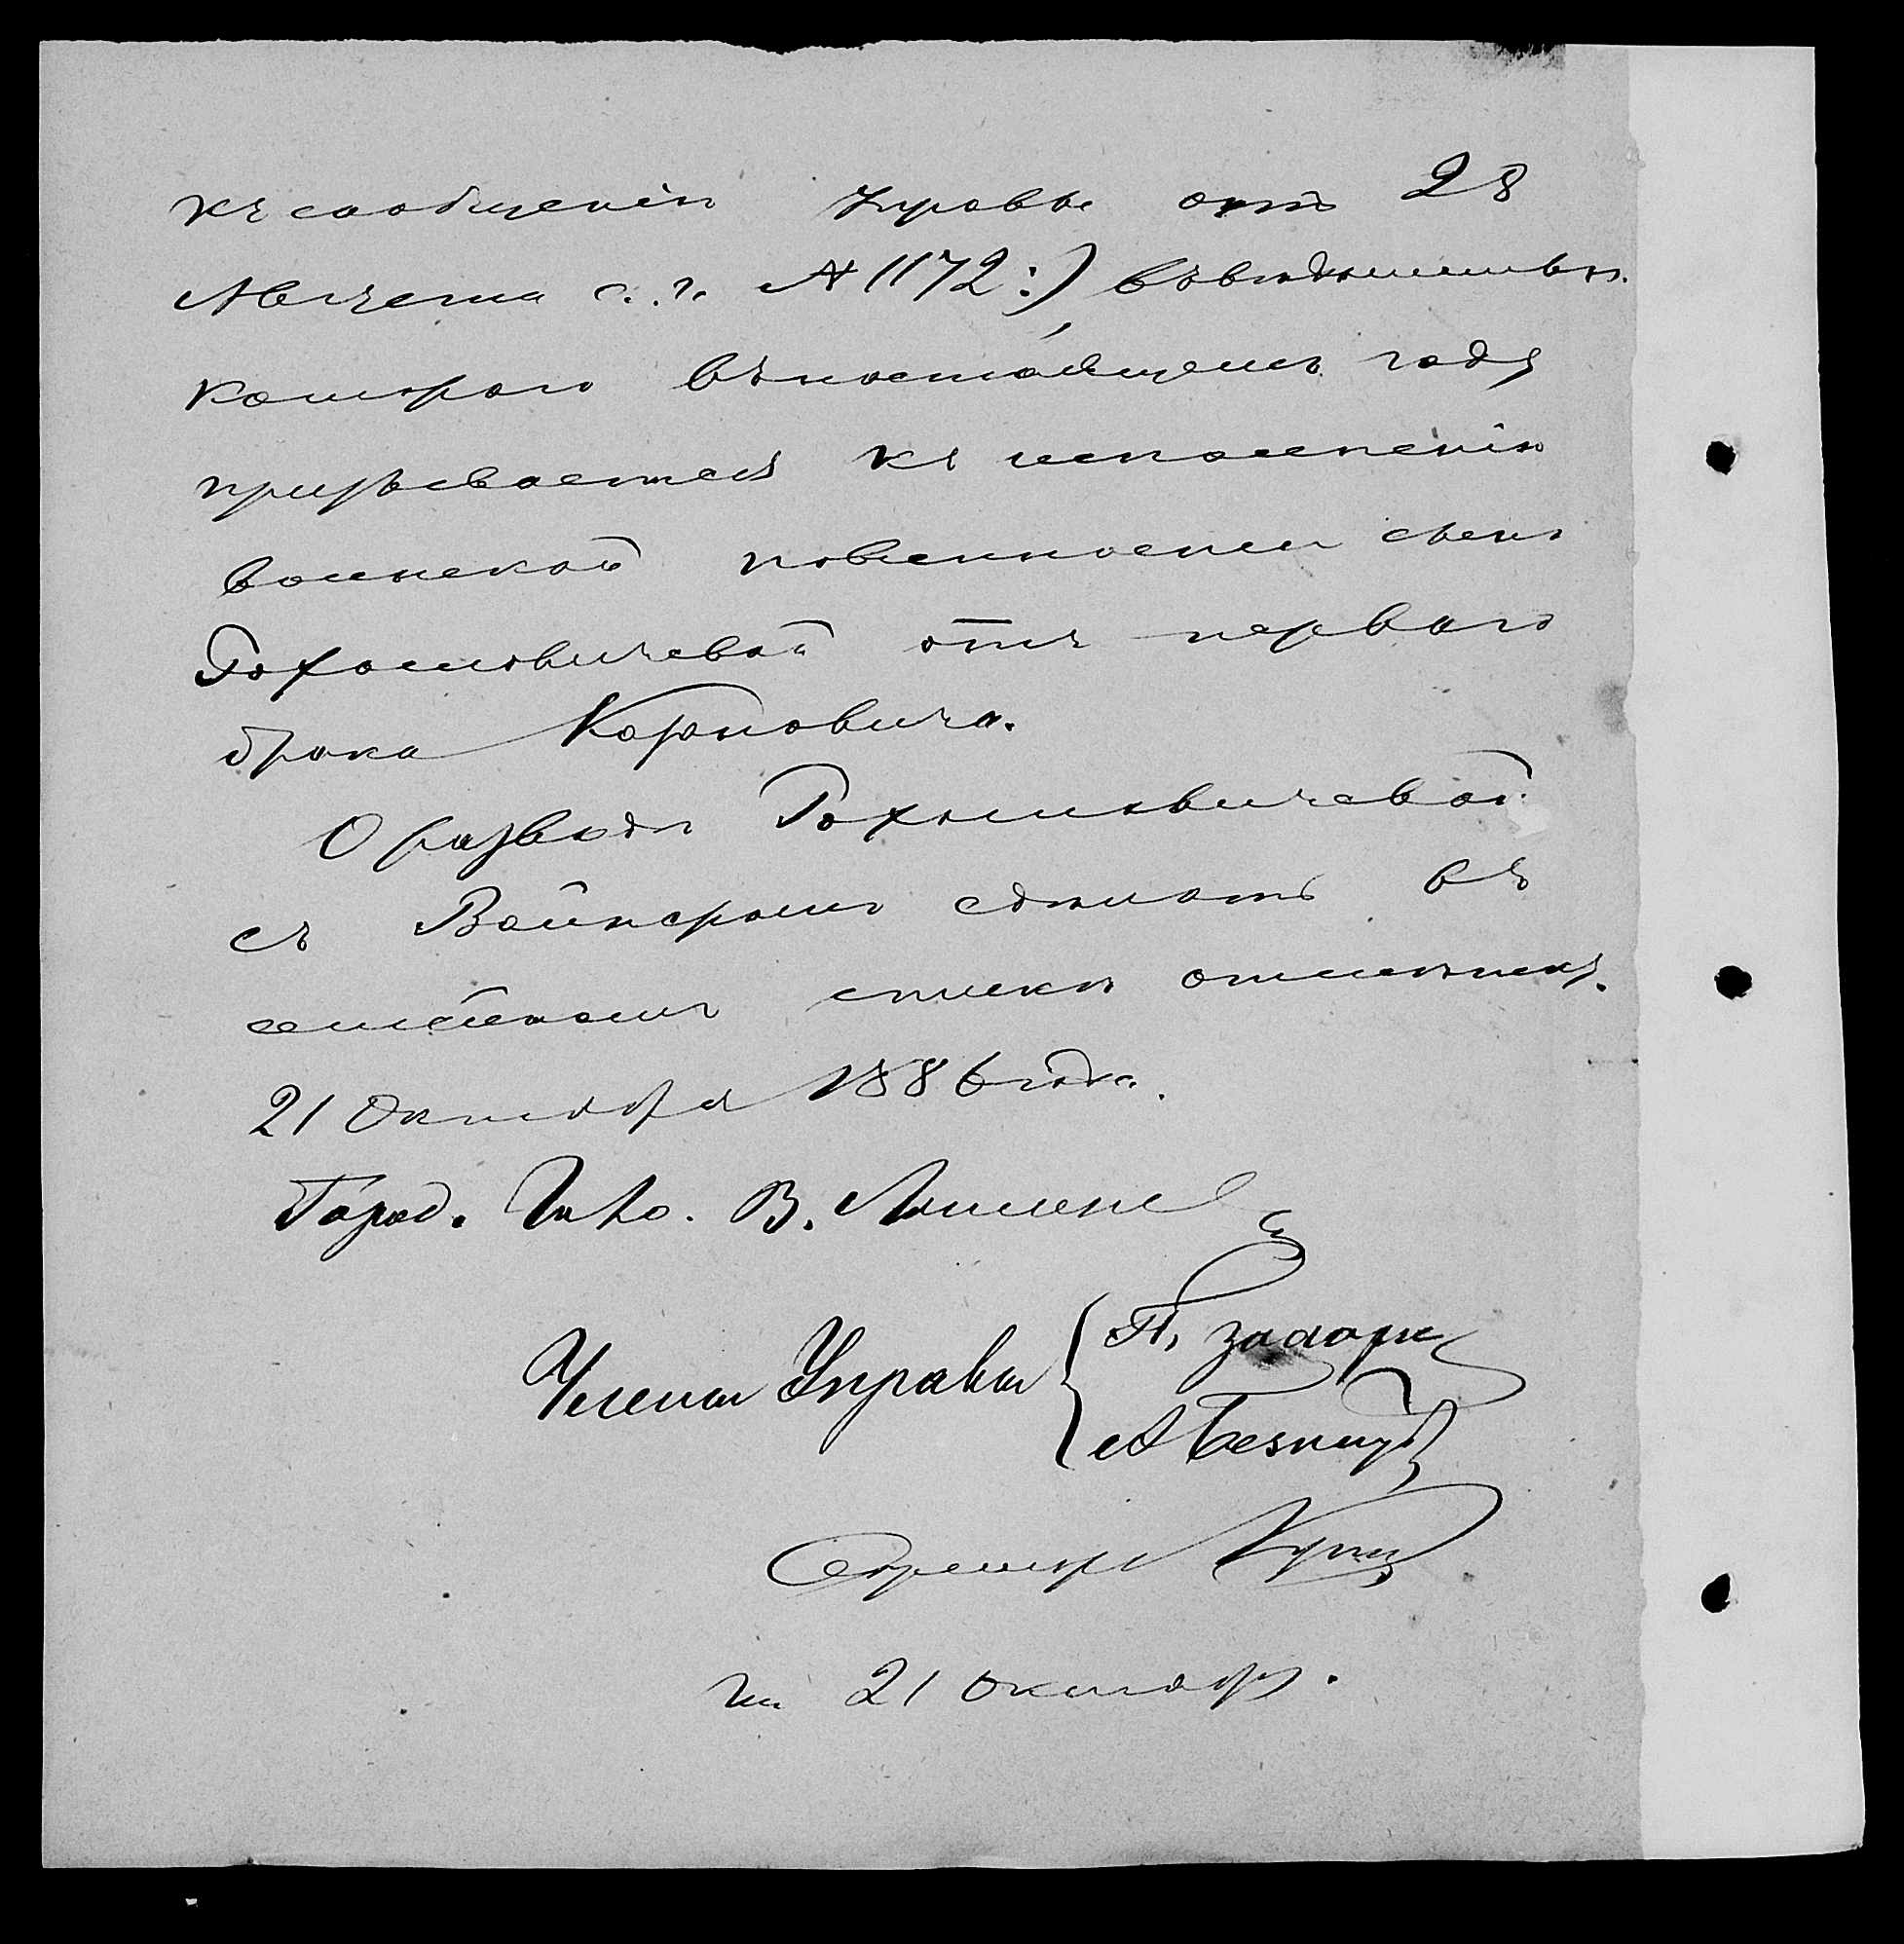 къ сообщенію Управы отъ 28
Августа с. г. № 1172:)
котораго въ настоящемъ году
призывается къ исполненію
воинской повинности сынъ
Рохомовичевой отъ перваго
брака Карповичъ.
О разводѣ Рохомовичевой
съ Вайнеромъ сдѣлать въ
семейномъ спискѣ отмѣтку.
21 Октября 1886 года.
Город. В.
Члены Управы П.
А
Секретарь
21 Октября.